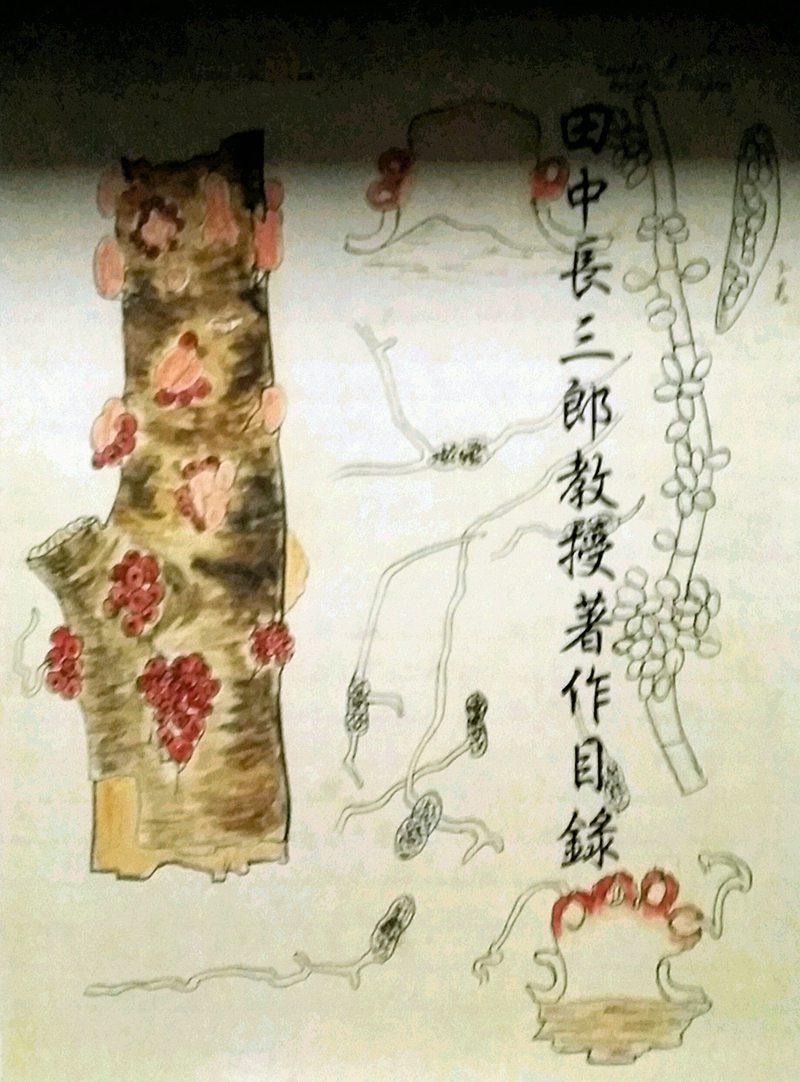 田中長三郎教授著作目錄